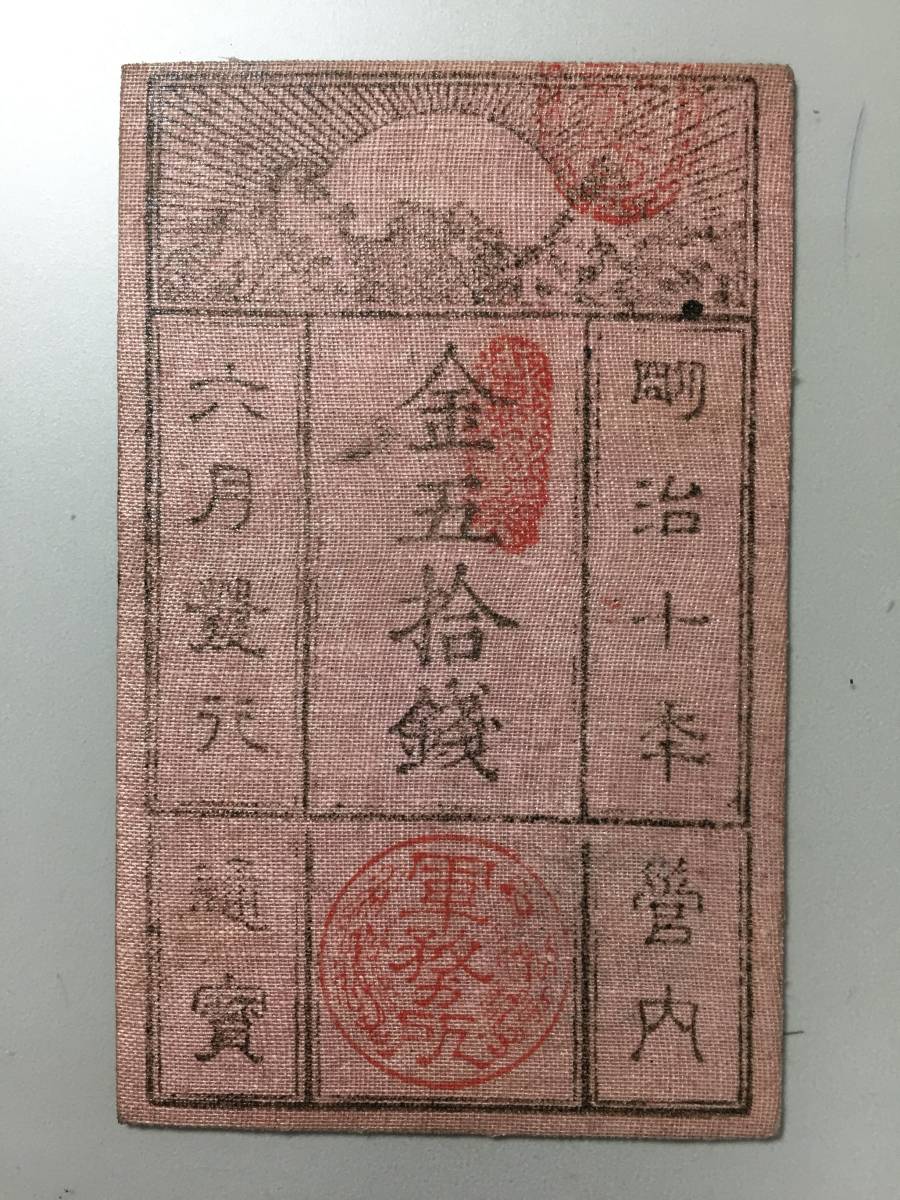 明治十年
金五拾錢
六月發行
營内
軍務所
通寶